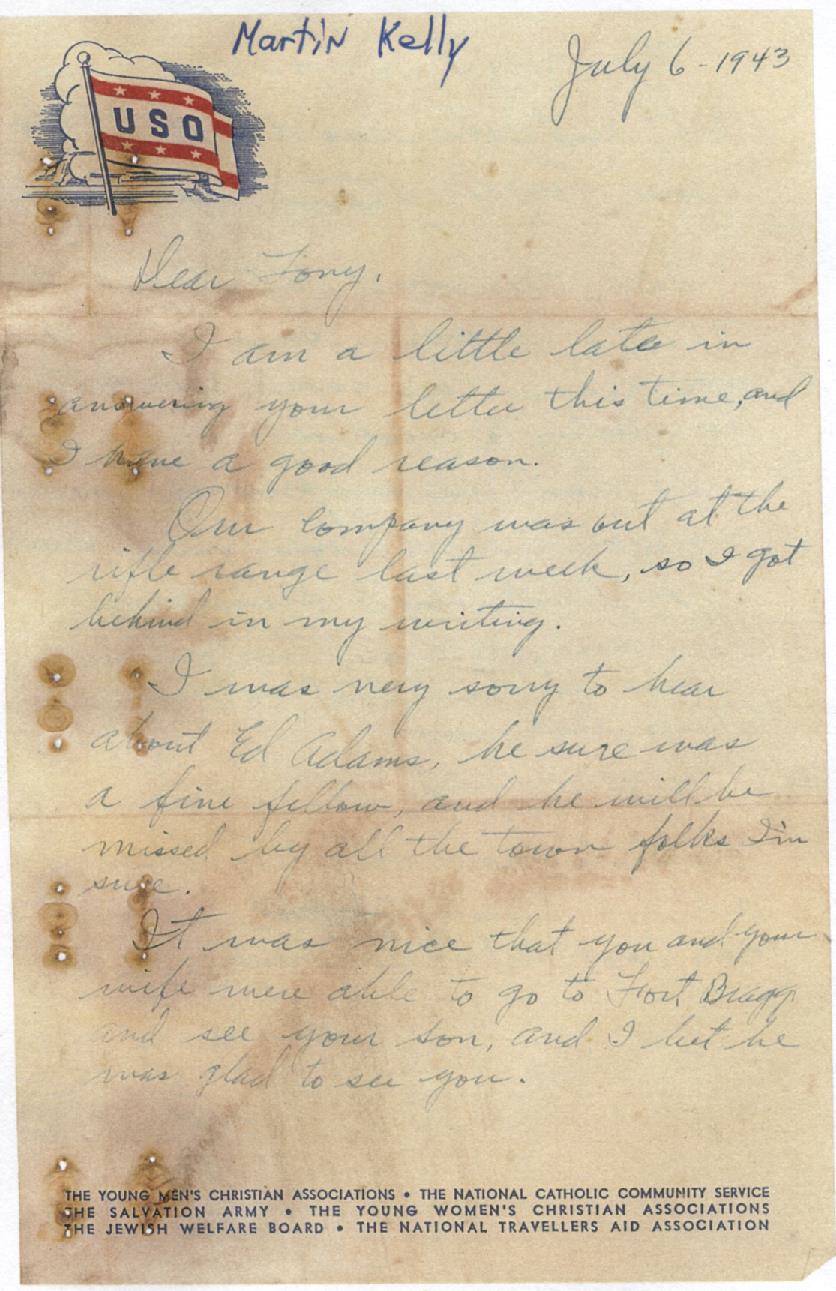 Martin Kelly
July 6-1943
USO
Dear Tony,
I am a little late in
answering your letter this time, and
I have a good reason.
Our company was out at the
rifle range last week, so I got
behind in my writing.
I was very sorry to hear
about Ed Adams, he sure was
a fine fellow, and he will be
missed by all the town folks I'm
sure.
It was nice that you and your
wife were able to go to Fort Bragg
and see your son, and I bet he
was glad to see you.
THE YOUNG MEN'S CHRISTIAN ASSOCIATIONS • THE NATIONAL CATHOLIC COMMUNITY SERVICE
THE SALVATION ARMY • THE YOUNG WOMEN'S CHRISTIAN ASSOCIATIONS
THE JEWISH WELFARE BOARD • THE NATIONAL TRAVELLERS AID ASSOCIATION